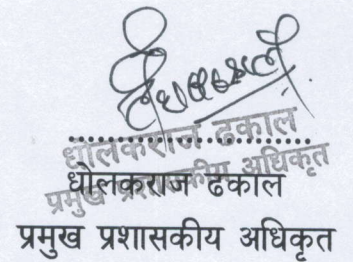 धोलकराज ढकाल
प्रमुख प्रशासकीय अधिकृत
धोलकराज ढकाल
प्रमुख प्रशासकीय अधिकृत